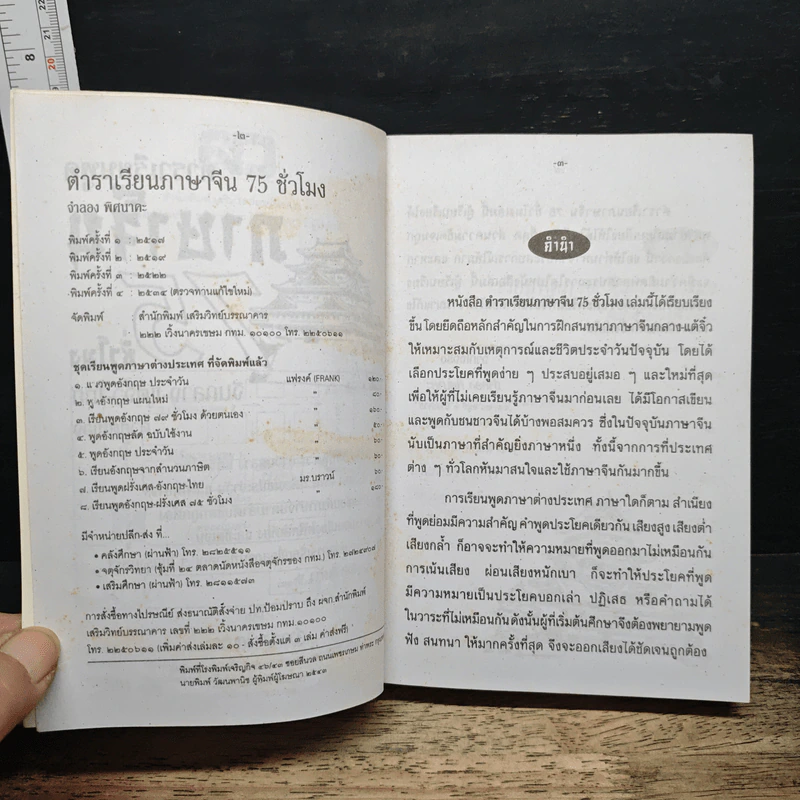 -๒-
ตำราเรียนภาษาจีน 75 ชั่วโมง
จำลอง พิศนาคะ
พิมพ์ครั้งที่ ๑ : ๒๕๑๗
พิมพ์ครั้งที่ ๒ : ๒๕๑๙
พิมพ์ครั้งที่ ๓ : ๒๕๒๒
พิมพ์ครั้งที่ ๔ : ๒๕๓๔ (ตรวจทานแก้ไขใหม่)
จัดพิมพ์ สำนักพิมพ์ เสริมวิทย์บรรณาคาร
: ๒๒๒ เวิ้งนาครเขษม กทม. ๑๐๑๐๐ โทร. ๒๒๕๐๖๑๑
ชุดเรียนพูดภาษาต่างประเทศ ที่จัดพิมพ์แล้ว
๑. แนวพูดอังกฤษ ประจำวัน แฟรงค์ (FRANK) ๑๒๐.
๒. พูดอังกฤษ แผนใหม่ " ๘๐.
๓. เรียนพูดอังกฤษ ๗๙ ชั่วโมง ด้วยตนเอง " ๖๐.
๔. พูดอังกฤษลัด ฉบับใช้งาน " ๕๐.
๕. พูดอังกฤษ ประจำวัน "
๖. เรียนอังกฤษจากสำนวนภาษิต " ๖๐.
๗. เรียนพูดฝรั่งเศส-อังกฤษ-ไทย มร.บราวน์ ๖๐.
๘. เรียนพูดอังกฤษ-ฝรั่งเศส ๗๕ ชั่วโมง " ๑๘๐.
มีจำหน่ายปลีก-ส่ง ที่...
• คลังศึกษา (ผ่านฟ้า) โทร. ๒๘๒๕๕๑๑
• จตุจักรวิทยา (ซุ้มที่ ๒๔ ตลาดนัดหนังสือจตุจักรของ กทม.) โทร. ๒๗๒๔๐๗๘
• เสริมศึกษา (ผ่านฟ้า) โทร. ๒๘๑๑๕๗๓
การสั่งซื้อทางไปรษณีย์ ส่งธนาณัติสั่งจ่าย ปท.ป้อมปราบ ถึง ผจก.สำนักพิมพ์
เสริมวิทย์บรรณาคาร เลขที่ ๒๒๒ เวิ้งนาครเขษม กทม.๑๐๑๐๐
โทร. ๒๒๕๐๖๑๑ (เพิ่มค่าส่งเล่มละ ๑๐ - สั่งซื้อตั้งแต่ ๓ เล่ม ค่าส่งฟรี)
พิมพ์ที่โรงพิมพ์เจริญกิจ ๔๖/๔๓ ซอยสีนวล ถนนเพชรเกษม ท่าพระ
นายพิมพ์ วัฒนพานิช ผู้พิมพ์ผู้โฆษณา ๒๕๔๓
-๓-
คำนำ
หนังสือ ตำราเรียนภาษาจีน 75 ชั่วโมง เล่มนี้ได้เรียบเรียง
ขึ้น โดยยึดถือหลักสำคัญในการฝึกสนทนาภาษาจีนกลาง-แต้จิ๋ว
ให้เหมาะสมกับเหตุการณ์และชีวิตประจำวันปัจจุบัน โดยได้
เลือกประโยคที่พูดง่าย ๆ ประสบอยู่เสมอ ๆ และใหม่ที่สุด
เพื่อให้ผู้ที่ไม่เคยเรียนรู้ภาษาจีนมาก่อนเลย ได้มีโอกาสเขียน
และพูดกับชนชาวจีนได้บ้างพอสมควร ซึ่งในปัจจุบันภาษาจีน
นับเป็นภาษาที่สำคัญยิ่งภาษาหนึ่ง ทั้งนี้จากการที่ประเทศ
ต่าง ๆ ทั่วโลกหันมาสนใจและใช้ภาษาจีนกันมากขึ้น
การเรียนพูดภาษาต่างประเทศ ภาษาใดก็ตาม สำเนียง
ที่พูดย่อมมีความสำคัญ คำพูดประโยคเดียวกัน เสียงสูง เสียงต่ำ
เสียงกล้ำ ก็อาจจะทำให้ความหมายที่พูดออกมาไม่เหมือนกัน
การเน้นเสียง ผ่อนเสียงหนักเบา ก็จะทำให้ประโยคที่พูด
มีความหมายเป็นประโยคบอกเล่า ปฏิเสธ หรือคำถามได้
ในวาระที่ไม่เหมือนกันดังนั้นผู้ที่เริ่มต้นศึกษาจึงต้องพยายามพูด
ฟัง สนทนา ให้มากครั้งที่สุด จึงจะออกเสียงได้ชัดเจนถูกต้อง
8
20
21
22